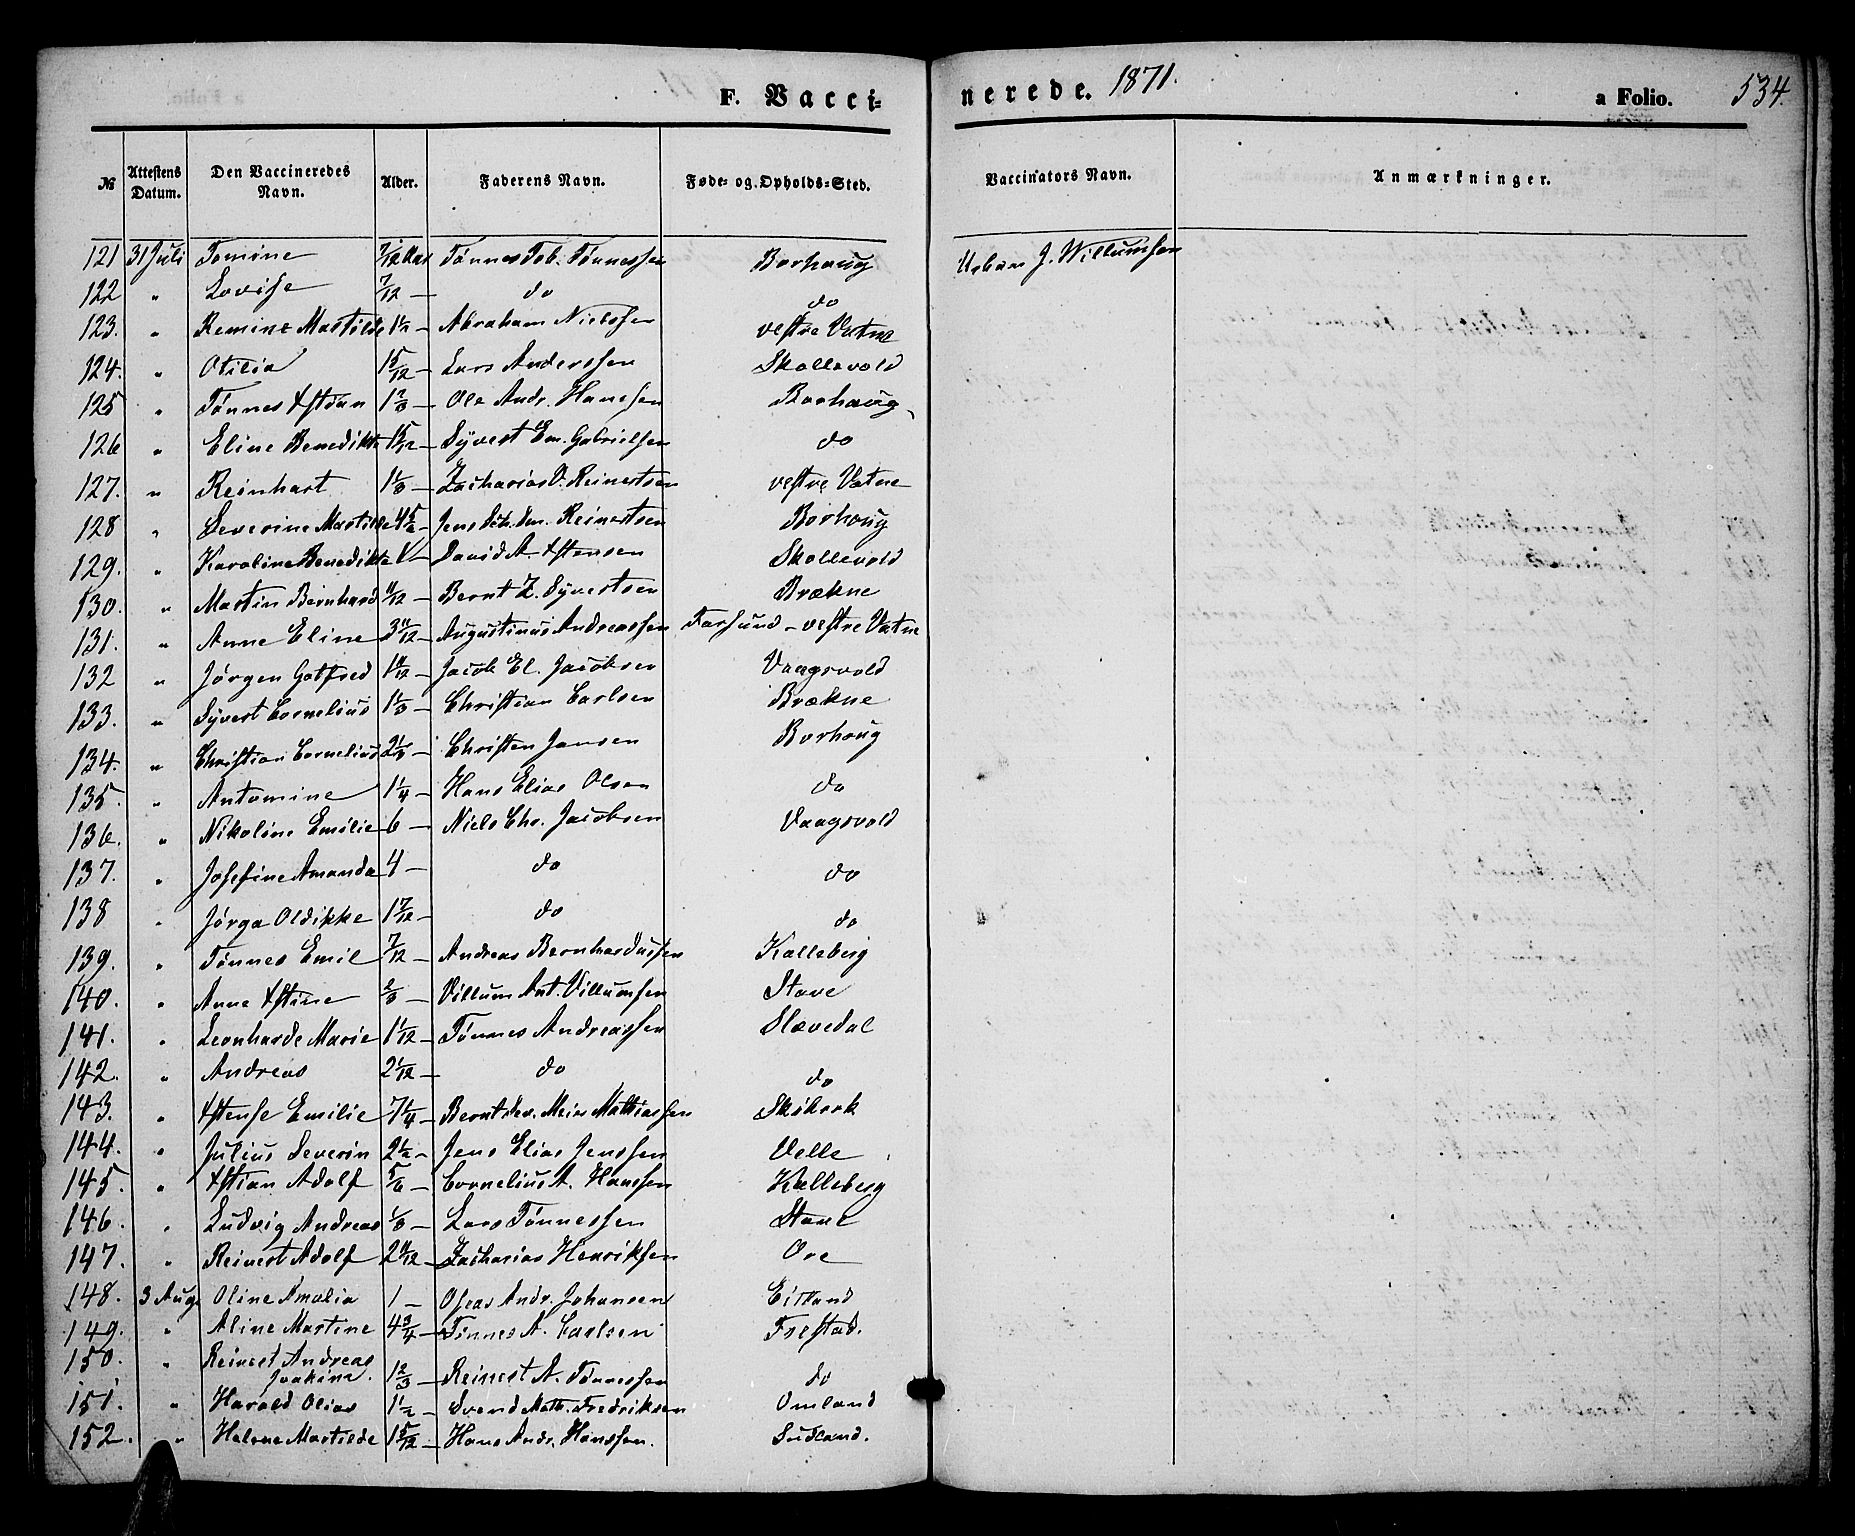 F. Vacci-
nerede. 1871.
a Folio. 534.
№ Attestens Datum. Den Vaccineredes Navn. Alder. Faderens Navn. Føde- og Opholds-Sted. Vaccinators Navn. Anmærkninger.
121 31 Juli Tomine 7/12 Aar Tønnes Tob. Tønnessen Borhaug J. Willumsen
122 " Lovise 7/12 — do do
123. " Remine Martilde 1½ — Abraham Nielssen vestre Vatne
124. " Otilia 1 5/12 — Lars Anderssen Skollevold
125 " Tønnes Xstian 1 2/3 — Ole Andr. Hanssen Borhaug
126 " Eline Benedikte 1 5/12 — Syvert Em. Gabrielsen do
127. " Reinhart 1 1/3 — Zacharias V. Reinertsen vestre Vatne
128 " Severine Martilde — Jens Reinertsen Borhoug
129. " Karoline Benedikte — David A. Xstensen Skollevold
130. " Martin Bernhard 11/12 — Bernt Z. Syvertsen Brækne
131. " Anne Eline 3 11/12 — Augustinus Andreassen Farsund - vestre Vatne
132 " Jørgen Gotfred — Jacob El. Jacobsen Vaagsvold
133. " Syvert Cornelius 1 1/3 — Christian Carlsen Brækne
134. " Christian Cornelius — Christen Jansen Borhoug
135. " Antomine 1 1/4 — Hans Elias Olsen do
136. " Nikoline Emilie 6 — Niels Chr. Jacobsen Vaagsvold
137. " Josefine Amanda 4 — do do
138 " Jørga Oldikke 1 7/12 — do do
139. " Tønnes Emil 7/12 — Andreas Bernhardussen Kalleberg
140. " Anne Xstine 2/3 — Villum Ant. Villumsen Stave
141. " Leonharde Marie 1 1/12 — Tønnes Andreassen Slævedal
142. " Andreas 2 1/12 — do do
143. " Xstense Emilie 7 1/4 — Bernt Sev. Mein Mathiassen
144. " Julius Severin 2½ — Jens Elias Jenssen Velle
145. " Xstian Adolf 5/6 — Cornelius A. Hanssen Kalleberg
146. " Ludvig Andreas 1/3 — Lars Tønnessen Stave
147. " Reinert Adolf 2 11/12 — Zacharias Henriksen Ore
148. 3 Aug. Oline Amalia 1 — Oseas Andr. Johansen Eitland
149. " Aline Martine 4 3/4 — Tønnes A. Carlsen Frestad.
150. " Reinert Andreas
Joakim. 1 2/3 — Reinert A. Tønnessen do
151. " Harald Olias 1½ — Svend Math. Fredriksen Omland
152. " Helene Martilde 1 5/12 — Hans Andr. Hanssen. Sudland.